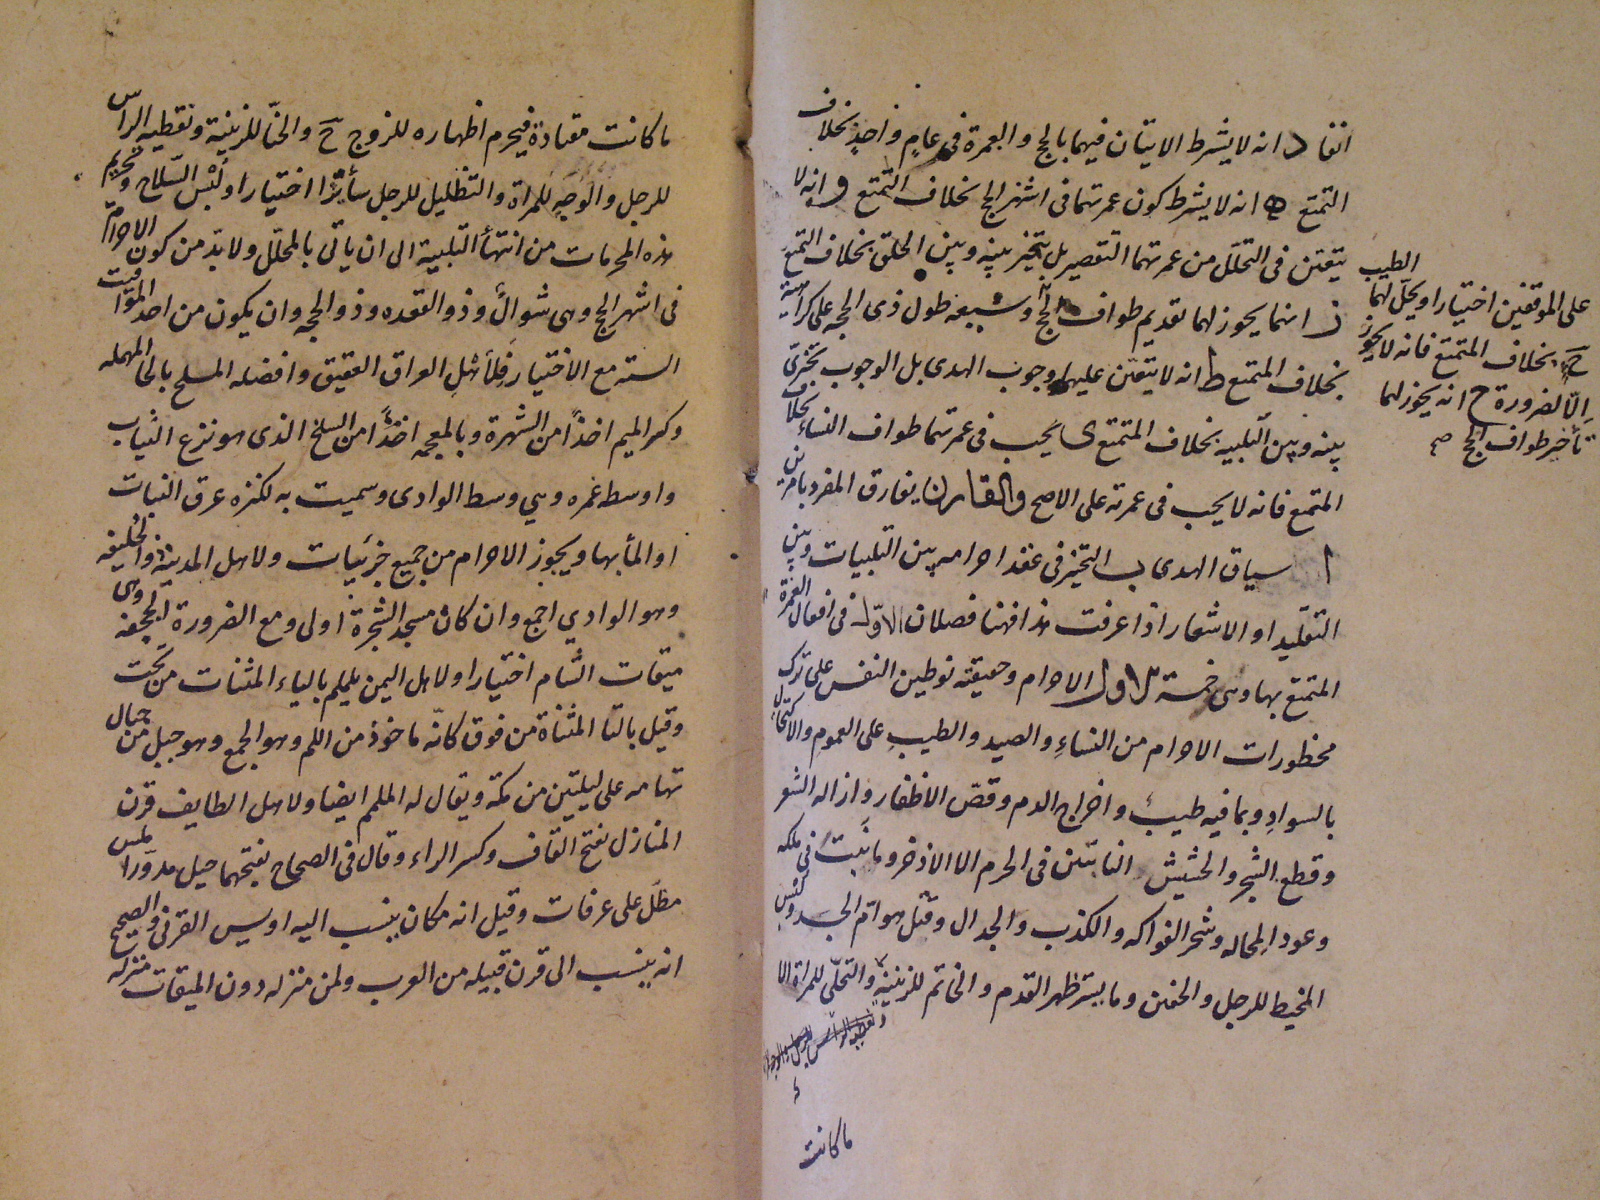 انفا د انه لا يشرط الاتيان فيهما بالحج والعمرة في عامٍ واحدٍ بخلاف
التمتع ه انه لا يشرط كون عمرتهما فى اشهر الحج بخلاف التمتع و انه لا
يتعين فى التحلل من عمرتهما التقصير بل يتخير بينه وبين الحلق بخلاف التمتع
ز انهما يجوز لهما تقديم طواف الحج وسعيه طول ذى الحجه على كراهية
بخلاف المتمتع ط انه لا يتعين عليهما وجوب الهدى بل الوجوب تخيرىّ
بينه وبين التلبيه بخلاف المتمتع ى يجب فى عمرتهما طواف النساء بخلاف
المتمتع فانه لا يجب فى عمرته على الاصح والقارن يفارق المفرد بامرين
ا سياق الهدى ب التخير فى عقد احرامه بين التلبيات وبين
التقليد او الاشعار اذا عرفت هذا فهنا فصلان الاوّل فى افعال العمرة
المتمتع بها وهى خمسة الاول الاحرام وحقيقته توطين النفس على ترك
محظورات الاحرام من النساءِ والصيد والطيبِ على العموم والاكتحال
بالسوادِ وبما فيه طيب واخراج الدم وقصّ الاظفار وازاله الشعر
وقطع الشجر والحشيش النابتين فى الحرم الا الاذخر وما ينبت فى ملكه
وعود المحاله وشجر الفواكه والكذب والجدال وقتل هوامّ الجسد ولبس
المخيط للرجل والخفين وما يستر ظهر القدم والخاتم للزينة والتحلّى للمراة الا
وتغطيه الراس للرجل والوجه
ما كانت
الطيب
على الموقفين اختيارا ويحل لهما
ح بخلاف المتمتع فانه لا يجوز
اِلّا لضرورة ح انه يجوز لهما
تأخير طواف الحج صح
ما كانت معتادة فيحرم اظهاره للزوج ح والحنّا للزينة وتغطيه الراس
للرجل والوَجهِ للمراة والتظليل للرجل سائرًا اختيارا ولُبْس السّلاح وتحريم
هذه المحرمات من انتهآ التلبية الى ان ياتى بالمحلّل ولا بدّ من كون الاحرام
فى اشهر الحج وهى شوالٌ وذو القعده وذو الحجه وان يكون من احد المواقيت
الستة مع الاختيار فلِأهلِ العراق العقيق وافضله المسلح بالحا المهمله
وكسر الميم اخذًا من الشهرة وبالمعجمه اخذًا من السلخ الذى هو نزع الثياب
واوسطه غمره وهي وسط الوادى وسميت به لكثره عرق النبات
او المآ بها ويجوز الاحرام من جميع جزئيات ولاهل المدينة ذو الحليفه
وهو الوادي اجمع وان كان مسجد الشجرة اولى ومع الضرورة الجحفه وهى
ميقات الشام اختيارا ولاهل اليمن يلملم بالياء المثنات من تحت
وقيل بالتا المثناة من فوق كانّه ماخوذ من اللم وهو الجمع وهو جبل من جبال
تهامه على ليلتين من مكة ويقال له الملم ايضا ولاهل الطايف قرن
المنازل بفتح القاف وكسر الراء وقال فى الصحاح بفتحهما جبل مدوّر املس
مطلّ على عرفات وقيل انه مكان ينسب اليه اويس القرنى والصحيح
انه ينسب الى قرن قبيله من العرب ولمن منزله دون الميقات منزله